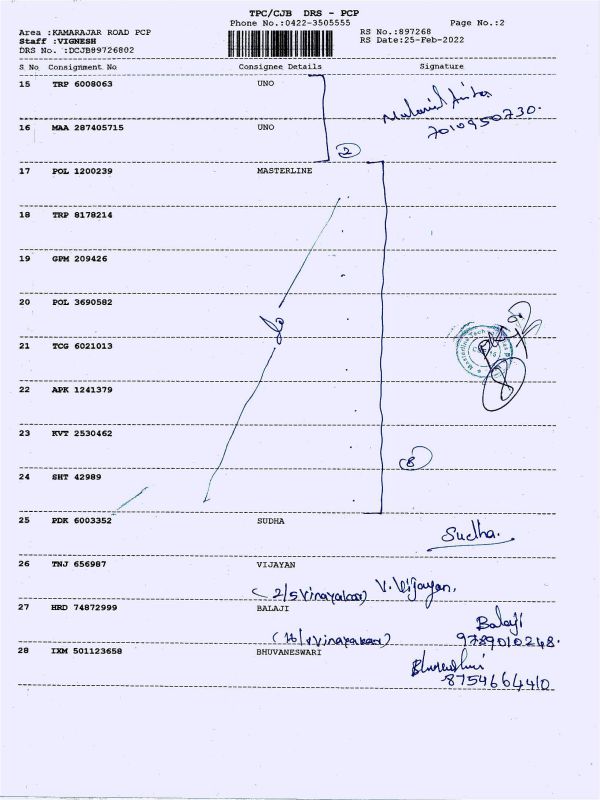 TPC/CJB DRS - PCP
Phone No.:0422-3505555 Page No.:2
Area :KAMARAJAR ROAD PCP RS No.:897268
Staff :VIGNESH RS Date:25-Feb-2022
DRS No. :DCJB89726802
S No Consignment No Consignee Details Signature
15 TRP 6008063 UNO
7010950730.
16 MAA 287405715 UNO
2
17 POL 1200239 MASTERLINE
18 TRP 8178214
19 GPM 209426
20 POL 3690582
21 TCG 6021013
Masterline Tech
22 APK 1241379
23 KVT 2530462
8
24 SHT 42989
25 PDK 6003352 SUDHA Sudha.
26 TNJ 656987 VIJAYAN
(2/5 Vinayakar) V. Vijayan.
27 HRD 74872999 BALAJI Balaji
Vinayakar) 9789010248.
28 IXM 501123658 BHUVANESWARI
8754664410